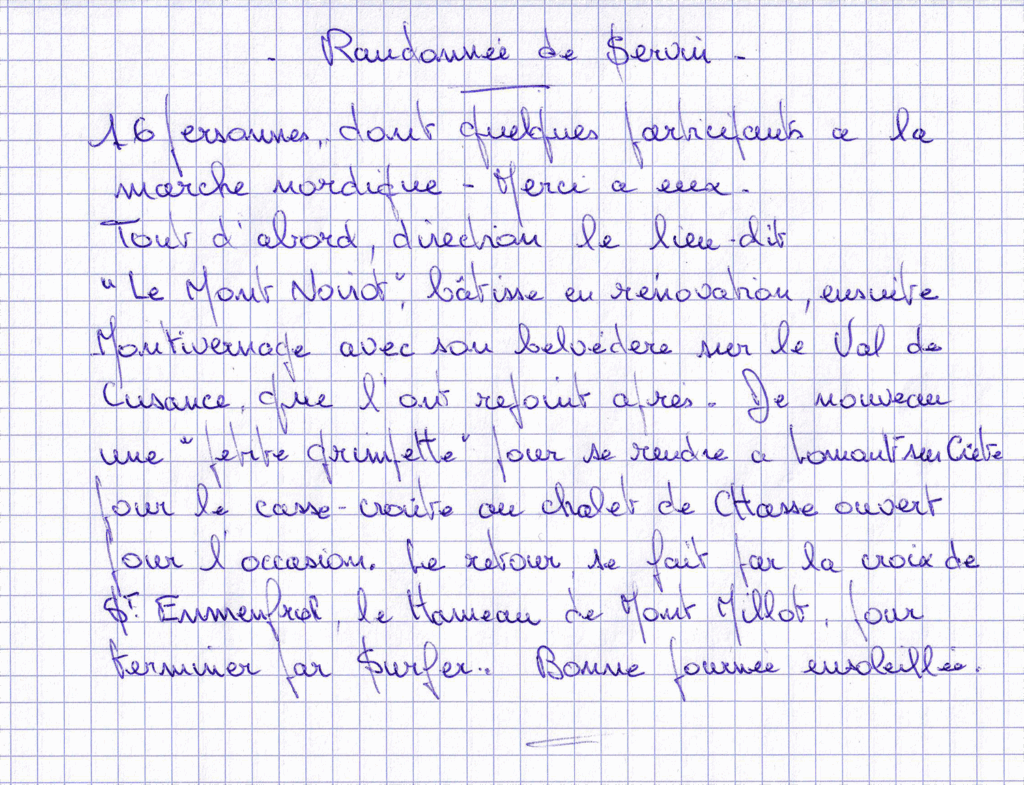 - Randonnée de Servin -
16 personnes, dont quelques participants a la
marche nordique - Merci a eux.
Tout d'abord, direction le lieu-dit
"Le Mont Noirot", bâtisse en rénovation, ensuite
Montivernage avec son belvédère sur le Val de
Cusance, que l'ont rejoint après. De nouveau
une "petite grimpette" pour se rendre a Lomont sur Crête
pour le casse-croûte au chalet de CHasse ouvert
pour l'occasion. Le retour se fait par la croix de
St. Ermenfroi, le Hameau de Mont Millot, pour
terminer par Surfer.. Bonne journée ensoleillée.